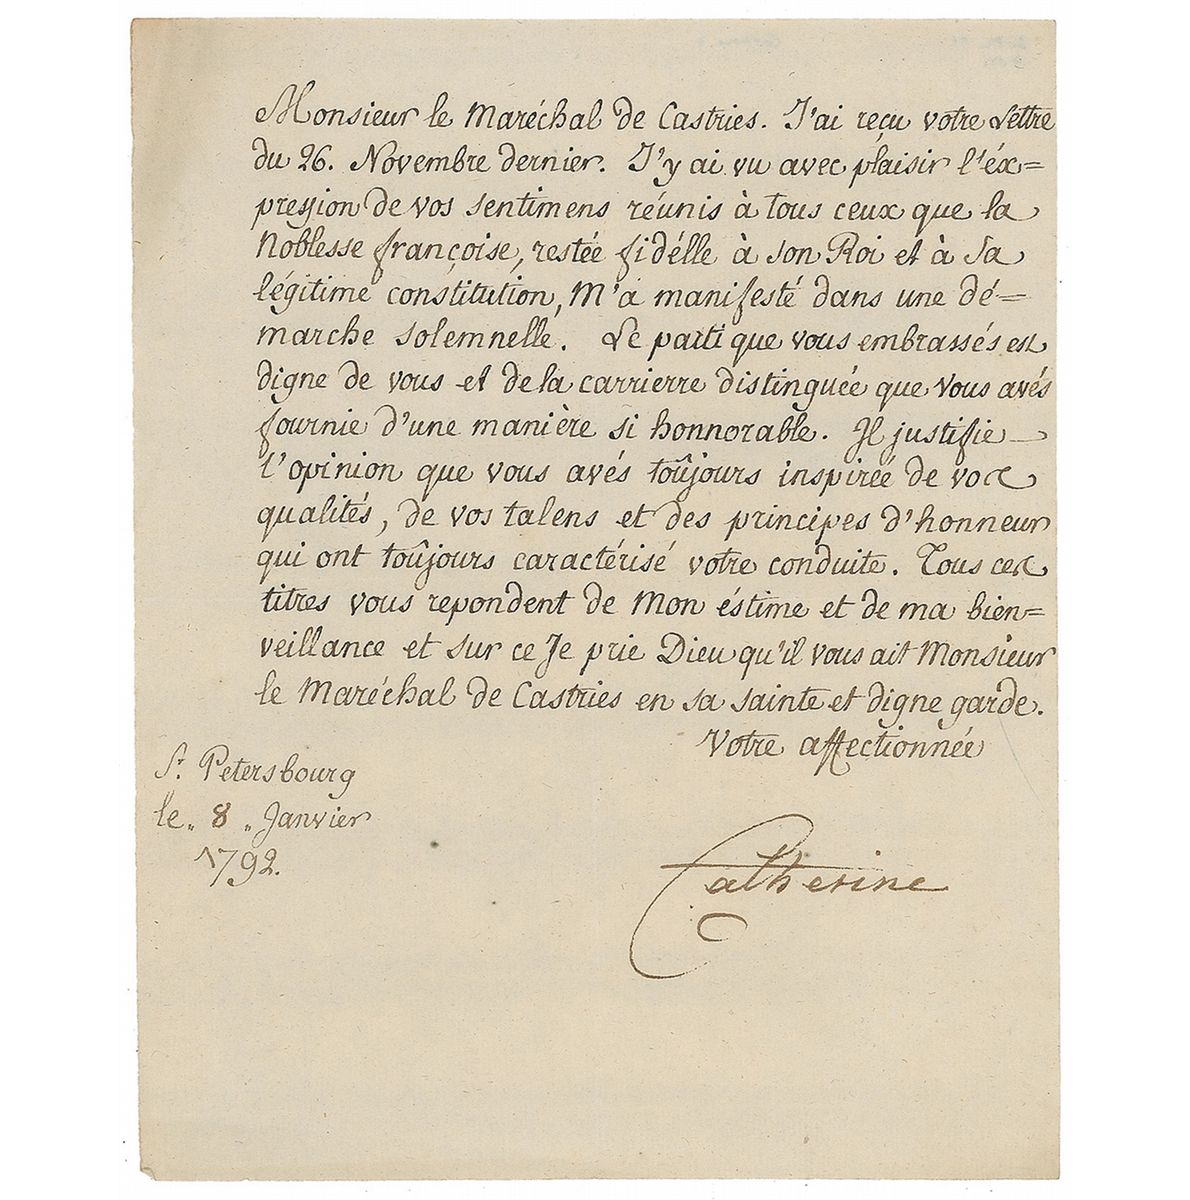 Monsieur le Maréchal de Castries. J'ai reçu votre Lettre
du 26. Novembre dernier. J'y ai vu avec plaisir l'éx=
pression de vos sentimens réunis à tous ceux que la
Noblesse françoise, restée fidélle à son Roi et à Sa
légitime constitution, M'a manifesté dans une dé=
marche solemnelle. Le parti que vous embrassés est
digne de vous et de la carrierre distinguée que Vous avés
fournie d'une manière si honnorable. Il justifie
l'opinion que vous avés toûjours inspirée de vos
qualités, de vos talens et des principes d'honneur
qui ont toûjours caractérisé votre conduite. Tous ces
titres vous repondent de Mon éstime et de ma bien=
veillance et sur ce Je prie Dieu qu'il vous ait Monsieur
le Maréchal de Castries en sa sainte et digne garde.
Votre affectionnée
St. Petersbourg
le „ 8 „ Janvier
1792.
Catherine